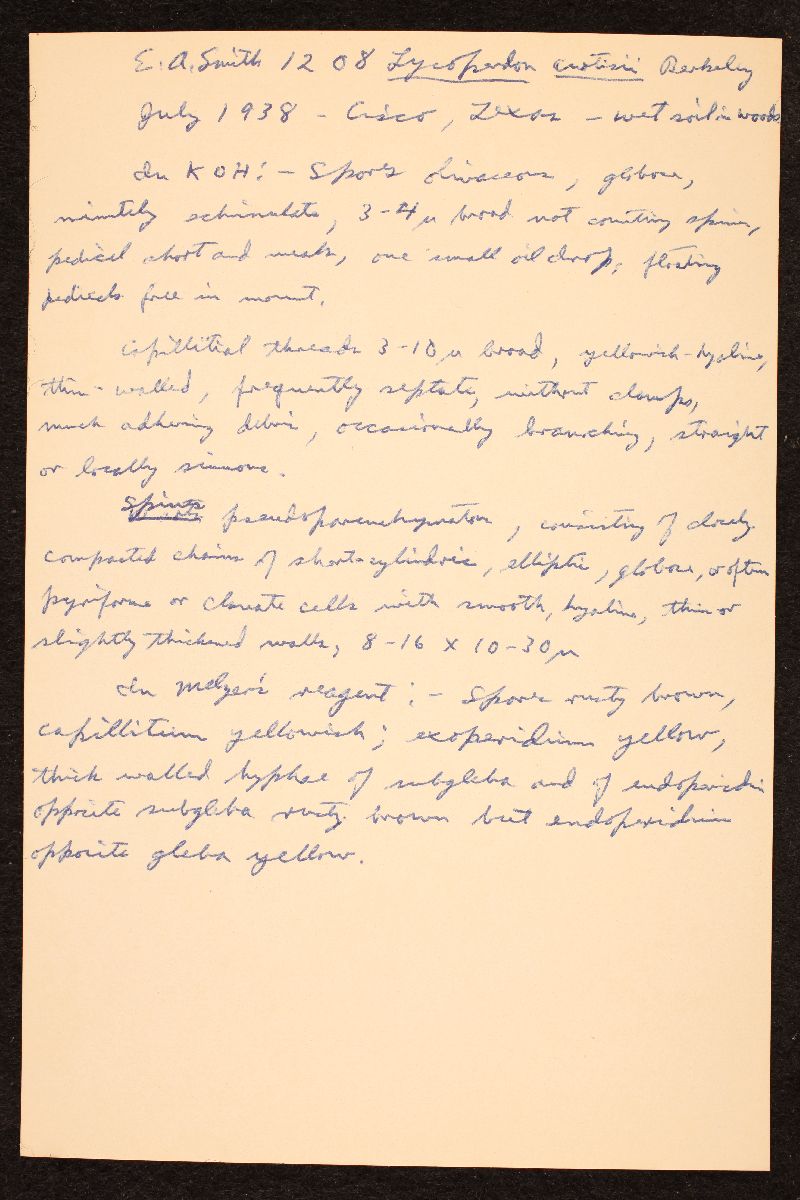 E. A. Smith 1208 Lycoperdon curtisii Berkeley
July 1938 - Cisco, Texas - wet soil in woods
In KOH: - Spores olivaceous, globose,
minutely echinulate, 3-4 µ broad not counting spines,
pedicel short and weak, one small oil drop; floating
pedicels free in mount.
Capillitial threads 3-10 µ broad, yellowish-hyaline,
thin-walled, frequently septate, without clamps,
much adhering debris, occasionally branching, straight
or locally sinuous.
Spines pseudoparenchymatous, consisting of closely
compacted chains of short-cylindric, elliptic, globose, or often
pyriform or clavate cells with smooth, hyaline, thin or
slightly thickened walls, 8-16 x 10-30 µ
In Melzer's reagent: - Spores rusty brown,
capillitium yellowish; exoperidium yellow,
thick walled hyphae of subgleba and of endoperidium
opposite subgleba rusty brown but endoperidium
opposite gleba yellow.